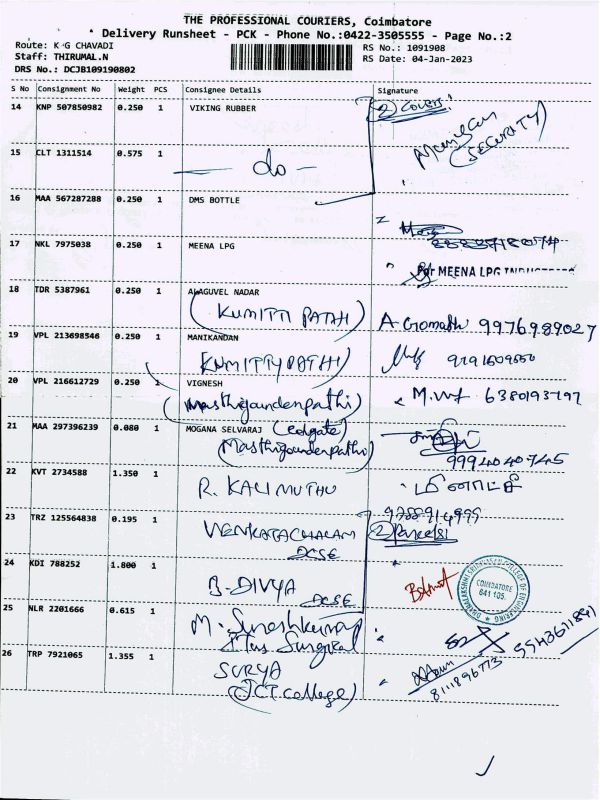 THE PROFESSIONAL COURIERS, Coimbatore
Delivery Runsheet - PCK - Phone No.:0422-3505555 - Page No.:2
Route: K G CHAVADI
RS No.: 1091908
Staff: THIRUMAL.N
RS Date: 04-Jan-2023
DRS No.: DCJB109190802
S No Consignment No Weight PCS Consignee Details Signature
14 KNP 507850982 0.250 1 VIKING RUBBER
2 covers!
(SECURITY)
15 CLT 1311514 0.575 1
- do -
16 MAA 567287288 0.250 1 DMS BOTTLE
17 NKL 7975038 0.250 1 MEENA LPG
For MEENA LPG
18 TDR 5387961 0.250 1 ALAGUVEL NADAR
(KUMITTI PATHI) 9976989027
19 VPL 213698546 0.250 1 MANIKANDAN
KUMITTYPATHI)
20 VPL 216612729 0.250 1 VIGNESH
(Masthigoundenpathi) 6380193797
21 MAA 297396239 0.080 1 MOGANA SELVARAJ (Colgate)
(Masthigoundenpathi) 9994040745
22 KVT 2734588 1.350 1
R. KALIMUTHU மீனாட்சி
23 TRZ 125564838 0.195 1
VENKATACHALAM
DCSE
2 Parcels!
24 KDI 788252 1.800 1
B-DIVYA DCSE
COIMBATORE
641 105.
25 NLR 2201666 0.615 1
M. Sureshkumar
Surgical
26 TRP 7921065 1.355 1
SURYA
(JCT college)
8111896773